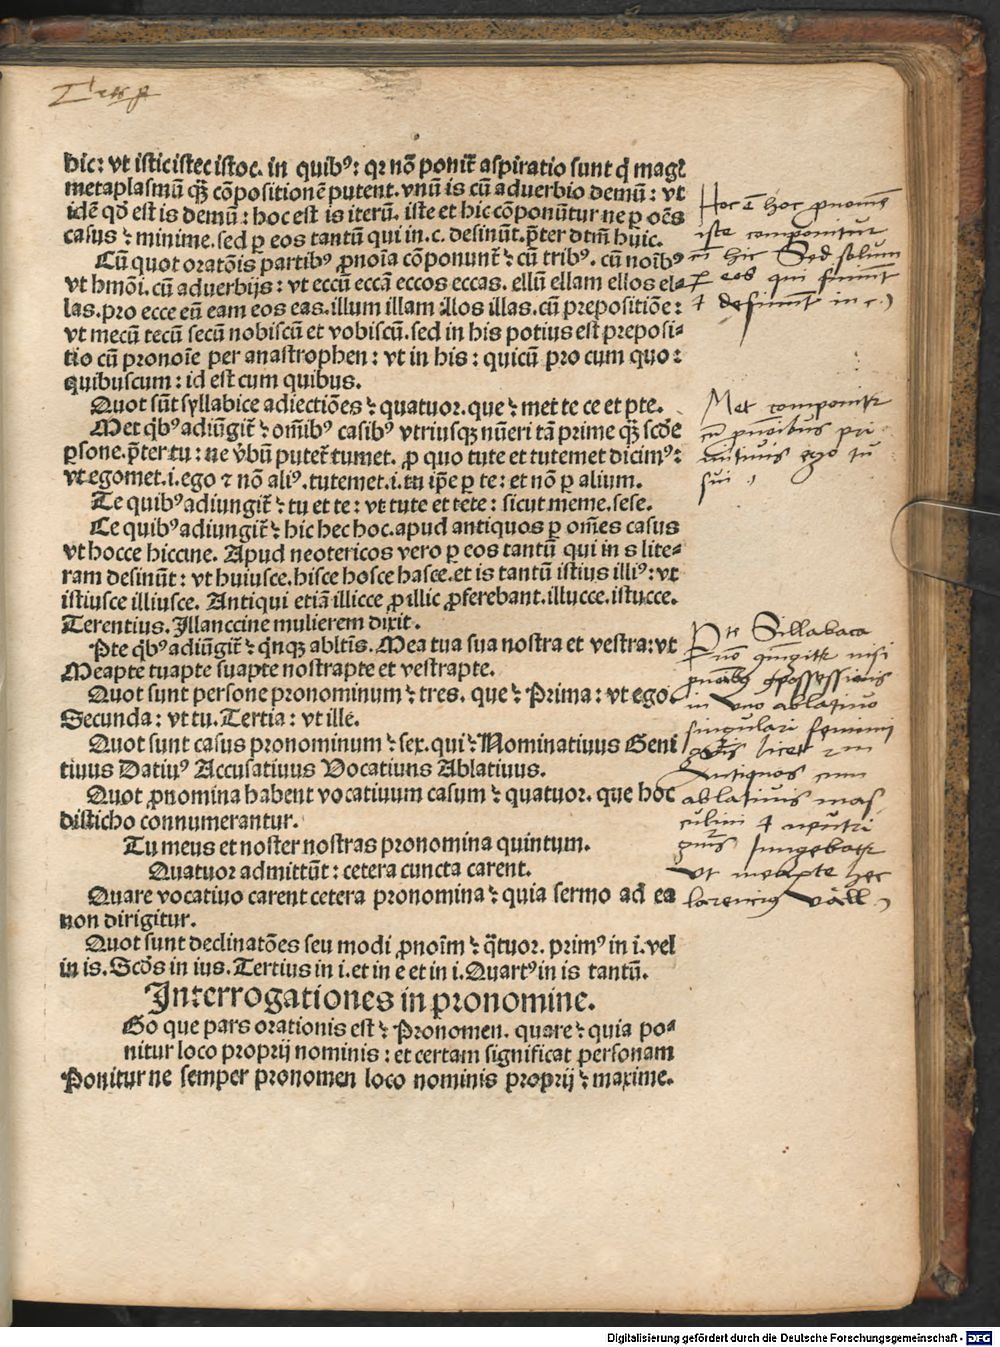 hic: vt istic istec istoc. in quibꝰ: qꝛ nõ ponit̃ aspiratio sunt q̃ magꝭ
metaplasmũ qꝫ̃ cõpositionẽ putent. vnũ is cũ aduerbio demũ: vt
idẽ qd̃ est is demũ: hoc est is iterũ. iste et hic cõponũtur ne ꝑ oẽs
casus ꝛ minime. sed ꝑ eos tantũ qui in .c. desinũt. p̃ter dtm̃ huic.
Cũ quot oratõis partibꝰ ꝓnoĩa cõponunt̃ ꝛ cũ tribꝰ. cũ noĩbꝰ
vt hmõi. cũ aduerbijs: vt eccũ eccã eccos eccas. ellũ ellam ellos el⸗
las. pro ecce eũ eam eos eas. illum illam illos illas. cũ prepositiõe:
vt mecũ tecũ secũ nobiscũ et vobiscũ. sed in his potius est preposi⸗
tio cũ pronoĩe per anastrophen: vt in his: quicũ pro cum quo:
quibuscum: id est cum quibus.
Quot sũt syllabice adiectiões ꝛ quatuor. que ꝛ met te ce et pte.
Met qb̃ꝰ adiũgit̃ ꝛ om̃ibꝰ casibꝰ vtriusqꝫ nũeri tã prime qꝫ̃ scd̃e
ꝑsone. p̃ter tu: ne v̓bũ putet̃ tumet. ꝓ quo tute et tutemet dicimꝰ:
vt egomet .i. ego ⁊ nõ aliꝰ. tutemet .i. tu ip̃e ꝑ te: et nõ ꝑ alium.
Te quibꝰ adiungit̃ ꝛ tu et te: vt tute et tete: sicut meme. sese.
Ce quibꝰ adiungit̃ ꝛ hic hec hoc. apud antiquos ꝑ om̃es casus
vt hocce hiccine. Apud neotericos vero ꝑ eos tantũ qui in s lite⸗
ram desinũt: vt huiusce. hisce hosce hasce. et is tantũ istius illiꝰ: vt
istiusce illiusce. Antiqui etiã illicce ꝓ illic ꝓferebant. illucce. istucce.
Terentius. Illanccine mulierem dixit.
Pte qb̃ꝰ adiũgit̃ ꝛ q̃nqꝫ abltĩs. Mea tua sua nostra et vestra: vt
Meapte tuapte suapte nostrapte et vestrapte.
Quot sunt persone pronominum ꝛ tres. que ꝛ Prima: vt ego
Secunda: vt tu. Tertia: vt ille.
Quot sunt casus pronominum ꝛ sex. qui ꝛ Nominatiuus Geni
tiuus Datiuꝰ Accusatiuus Vocatiuns Ablatiuus.
Quot ꝓnomina habent vocatiuum casum ꝛ quatuor. que hoc
disticho connumerantur.
Tu meus et noster nostras pronomina quintum.
Quatuor admittũt: cetera cuncta carent.
Quare vocatiuo carent cetera pronomina ꝛ quia sermo ad ea
non dirigitur.
Quot sunt declinatões seu modi ꝓnoĩm ꝛ q̃tuor. primꝰ in i. vel
in is. Scd̃s in ius. Tertius in i. et in e et in i. Quartꝰ in is tantũ.
Interrogationes in pronomine.
Go que pars orationis est ꝛ Pronomen. quare ꝛ quia po⸗
nitur loco proprij nominis: et certam significat personam
Ponitur ne semper pronomen loco nominis proprij ꝛ maxime.
Hoc ẽ hoc pronomẽ
iste componitur
cũ hic Sed solum
ꝑ eos qui finiunt
⁊ desinunt in c.
Met componitr
cũ pnoibus pri
mitiuis ego tu
sui
Pte Sillabaca
nõ iungitr nisi
possessiuis
in vno ablatiuo
singulari femini
licet
Antiquos cum
ablatiuis mas
culini ⁊ neutri
gñis iungebatr
vt meapte hec
Digitalisierung gefördert durch die Deutsche Forschungsgemeinschaft - DFG